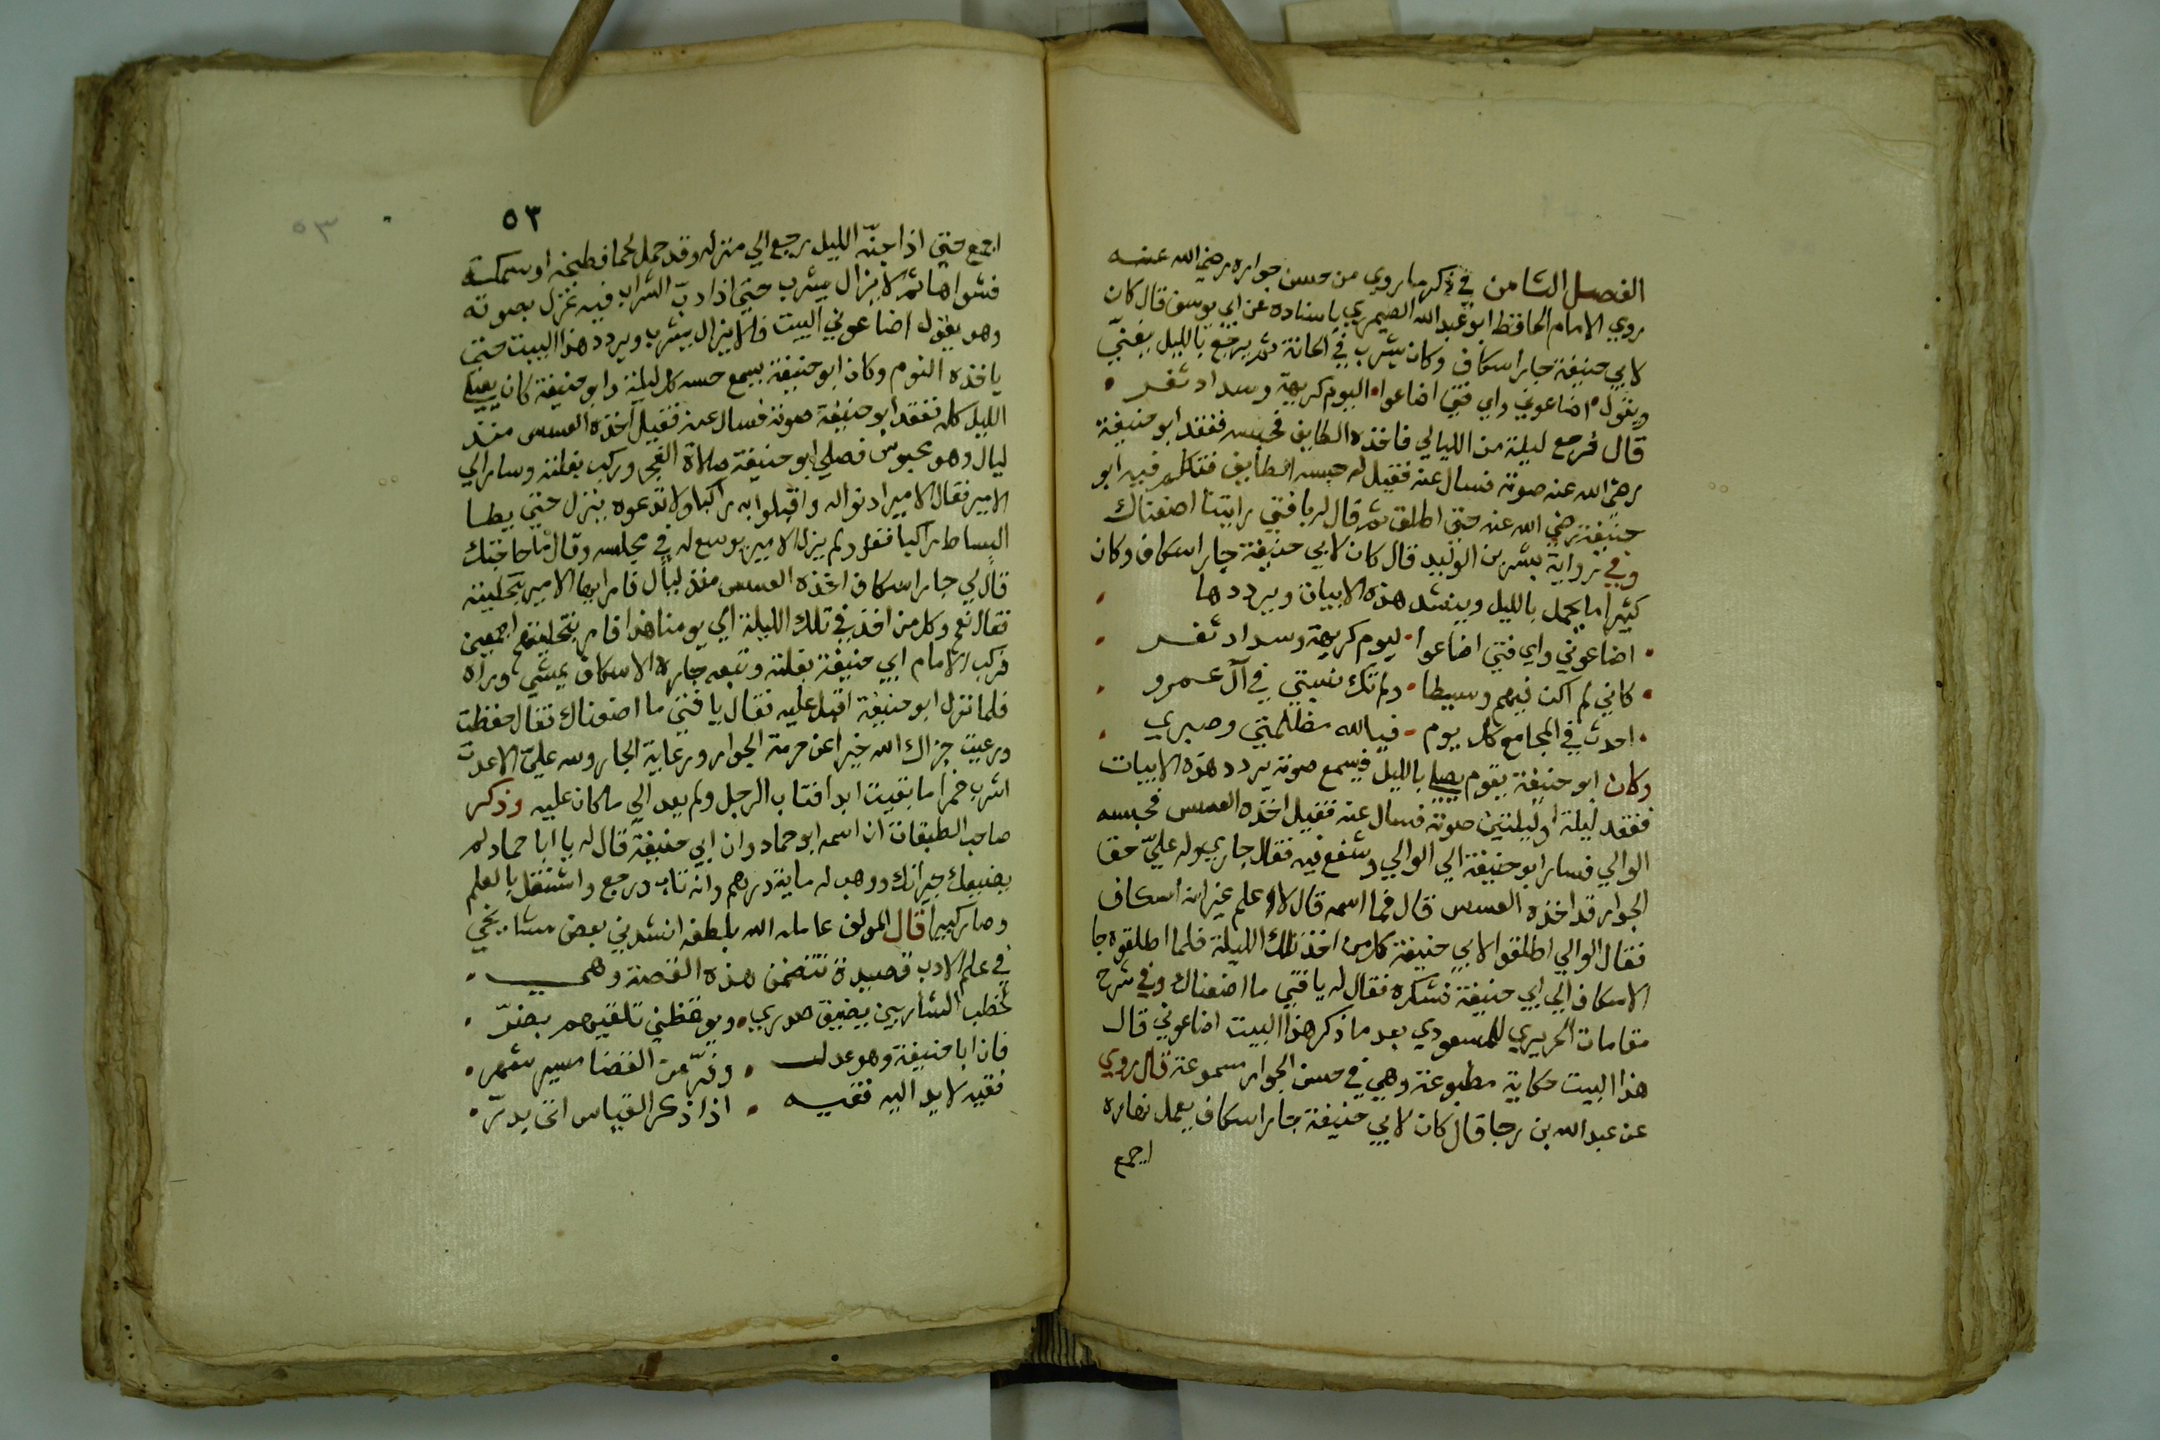 الفصل الثامن في ذكر ما روي من حسن جواره رضي الله عنه
روي الامام الحافظ ابو عبد الله الصيمري باسناده عن ابي يوسف قال كان
لابي حنيفة جار اسكاف وكان يشرب في الحانة ثم يرجع بالليل يغنّي
ويقول اضاعوني واي فتي اضاعوا اليوم كريهة وسداد ثغر
قال فرجع ليلة من الليالي فاخذه الطايف فحبسه ففقد ابو حنيفة
رضي الله عنه صوته فسال عنه فقيل له حبسه الطايف فتكلم فيه ابو
حنيفة رضي الله عنه حتي اطلق ثم قال له يا فتي رايتنا اضعناك
وفي رواية بشر بن الوليد قال كان لابي حنيفة جار اسكاف وكان
كثيرا ما يعمل بالليل وينشد هذه الابيات ويرددها
اضاعوني واي فتي اضاعوا ليوم كريهة وسداد ثغر
كاني لم اكن فيهم وسيطا ولم تك نسبتي في آل عمرو
احدث في المجامع كل يوم فيالله مظلمتي وصبري
وكان ابو حنيفة يقوم يصلي بالليل فيسمع صوته يردد هذه الابيات
ففقد ليلة او ليلتين صوته فسال عنه فقيل اخذه العسس فحبسه
الوالي فسار ابو حنيفة الي الوالي وشفع فيه فقال جاري وله عليّ حق
الجوار قد اخذه العسس قال فما اسمه قال لا اعلم غير انه اسكاف
فقال الوالي اطلقوا لابي حنيفة كل من اخذ تلك الليلة فلما اطلقوه جا
الاسكاف الي ابي حنيفة فشكره فقال له يا فتي ما اضعناك وفي شرح
مقامات الحريري للمسعودي بعد ما ذكر هذا البيت اضاعوني قال
هذا البيت حكاية مطبوعة وهي في حسن الجوار مسموعة قال روي
عن عبد الله بن رجا قال كان لابي حنيفة جار اسكاف يعمل نهاره
اجمع
٥٣
اجمع حتي اذا جنّه الليل رجع الي منزله وقد حمل لحما فطبخه او سمكة
فشواها ثم لا يزال يشرب حتي اذا دبّ الشراب فيه غزل بصوته
وهو يقول اضاعوني البيت فلا يزال يشرب ويردد هذا البيت حتي
ياخذه النوم وكان ابو حنيفة يسمع حسه كل ليلة وابو حنيفة كان يصلي
الليل كله ففقد ابو حنيفة صوته فسال عنه فقيل اخذه العسس منذ
ليال وهو محبوس فصلي ابو حنيفة صلاة الفجر وركب بغلته وسار الي
الامير فقال الامير ادنوا له واقبلوا به راكبا ولا تدعوه ينزل حتي يطا
البساط راكبا ففعل ولم يزل الامير يوسع له في مجلسه وقال ما حاجتك
قال لي جار اسكاف اخذه العسس منذ ليال فامر ايها الامير بتخليته
فقال نعم وكل من اخذ في تلك الليلة الي يومنا هذا فامر بتخليتهم اجمعين
فركب الامام ابي حنيفة بغلته وتبعه جاره الاسكاف يمشي وراه
فلما نزل ابو حنيفة اقبل عليه فقال يا فتي ما اضعناك فقال حفظت
ورعيت جزاك الله خيرا عن حرمة الجوار ورعاية الجار ولله عليّ لا عدت
اشرب خمرا ما بقيت ابدا فتاب الرجل ولم يعد الي ما كان عليه وذكر
صاحب الطبقات ان اسمه ابو حماد وان ابي حنيفة قال له يا ابا حماد لم
يضيعك جيرانك ووهب له ماية درهم وانه تاب ورجع واشتغل بالعلم
وصار كبيرا قال المولف عامله الله بلطفه انشدني بعض مشايخي
في علم الادب قصيدة تتضمن هذه القصة وهي
لخطب الشاربين يضيق صدري ويوقظني تلقيهم بضرّ
فان ابا حنيفة وهو عدل وفرّ من القضا مسير شهر
فقيه لا يدانيه فقيه اذا ذكر القياس اتى بدرّ